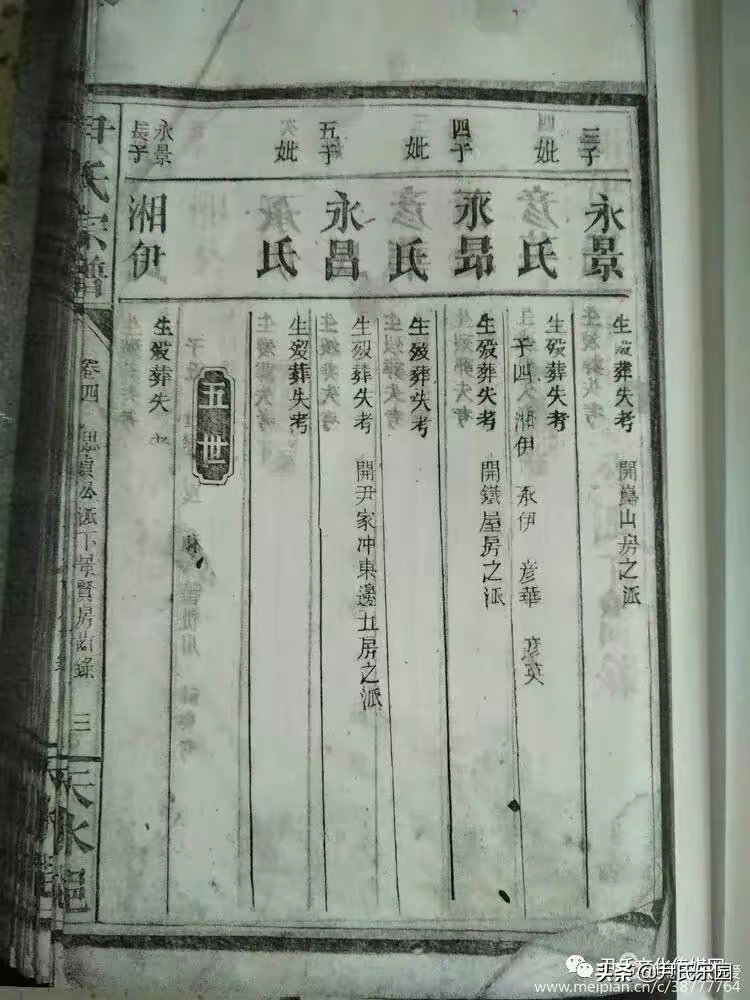 三子
永景
生殁葬失考
開巋山房之派
妣
氏
生殁葬失考
子四 湘伊 永伊 彦華 彦英
四子
永昂
生殁葬失考
開鐵屋房之派
妣
氏
生殁葬失考
五子
永昌
生殁葬失考
開尹家冲東邊五房之派
妣
氏
生殁葬失考
五世
永景長子
湘伊
生殁葬失考
尹氏宗譜
卷四
思貞公派下景賢房齒錄
三
天水
头条 @尹氏乐园
www.meipian.cn/c/38777764